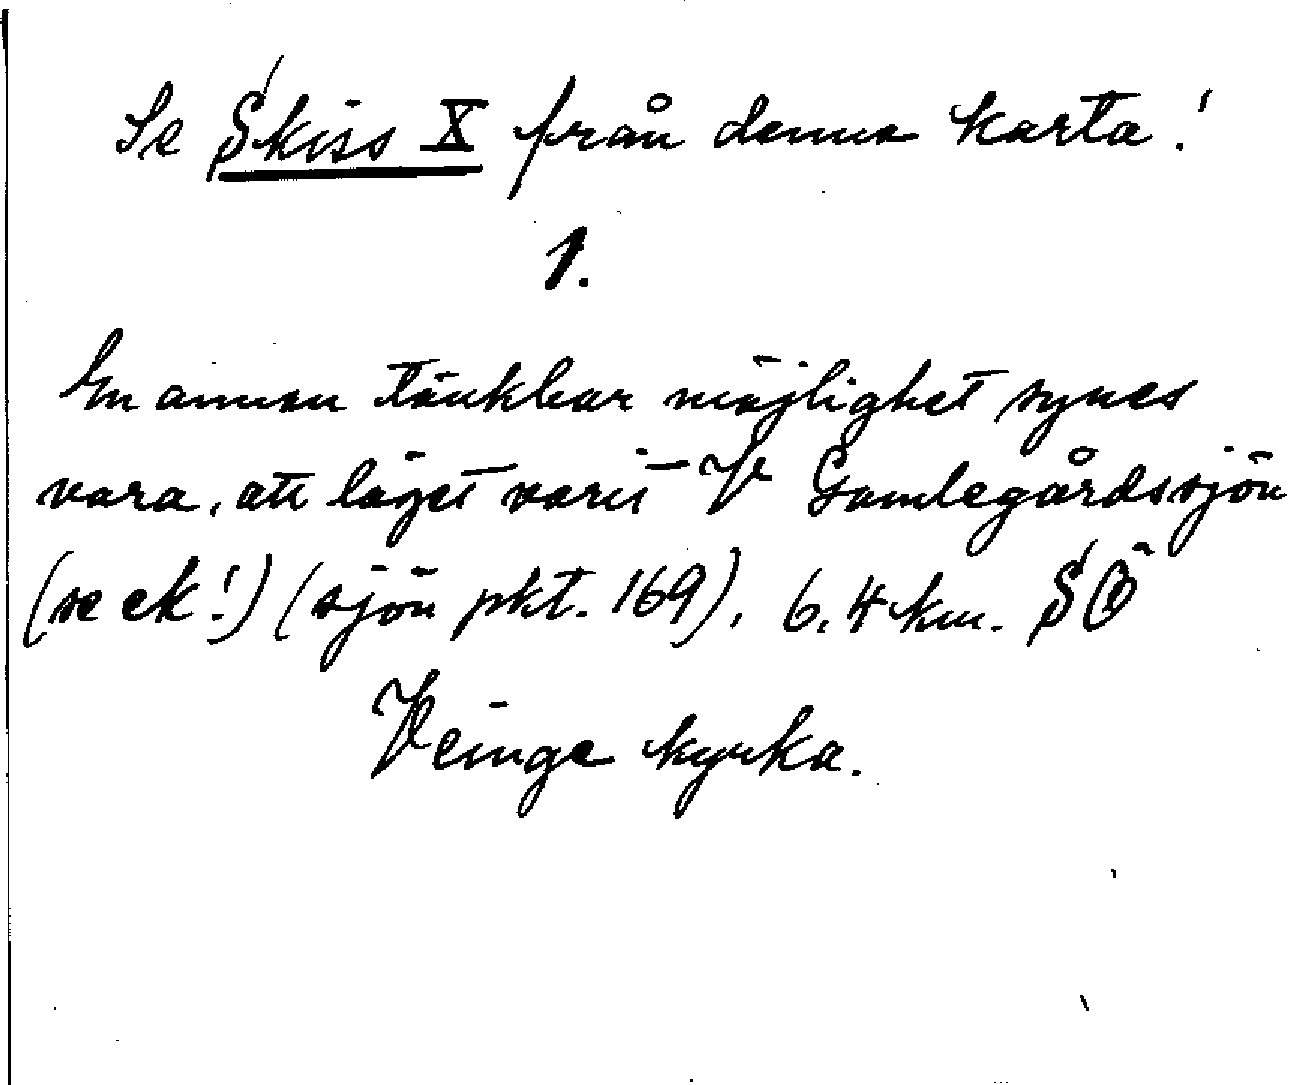 Se Skiss X från denna karta!
1.
En annan tänkbar möjlighet synes
vara, att läget varit V Gamlegårdssjön
(se ek!) (sjön pkt. 169), 6,4 km. SÖ
Veinge kyrka.